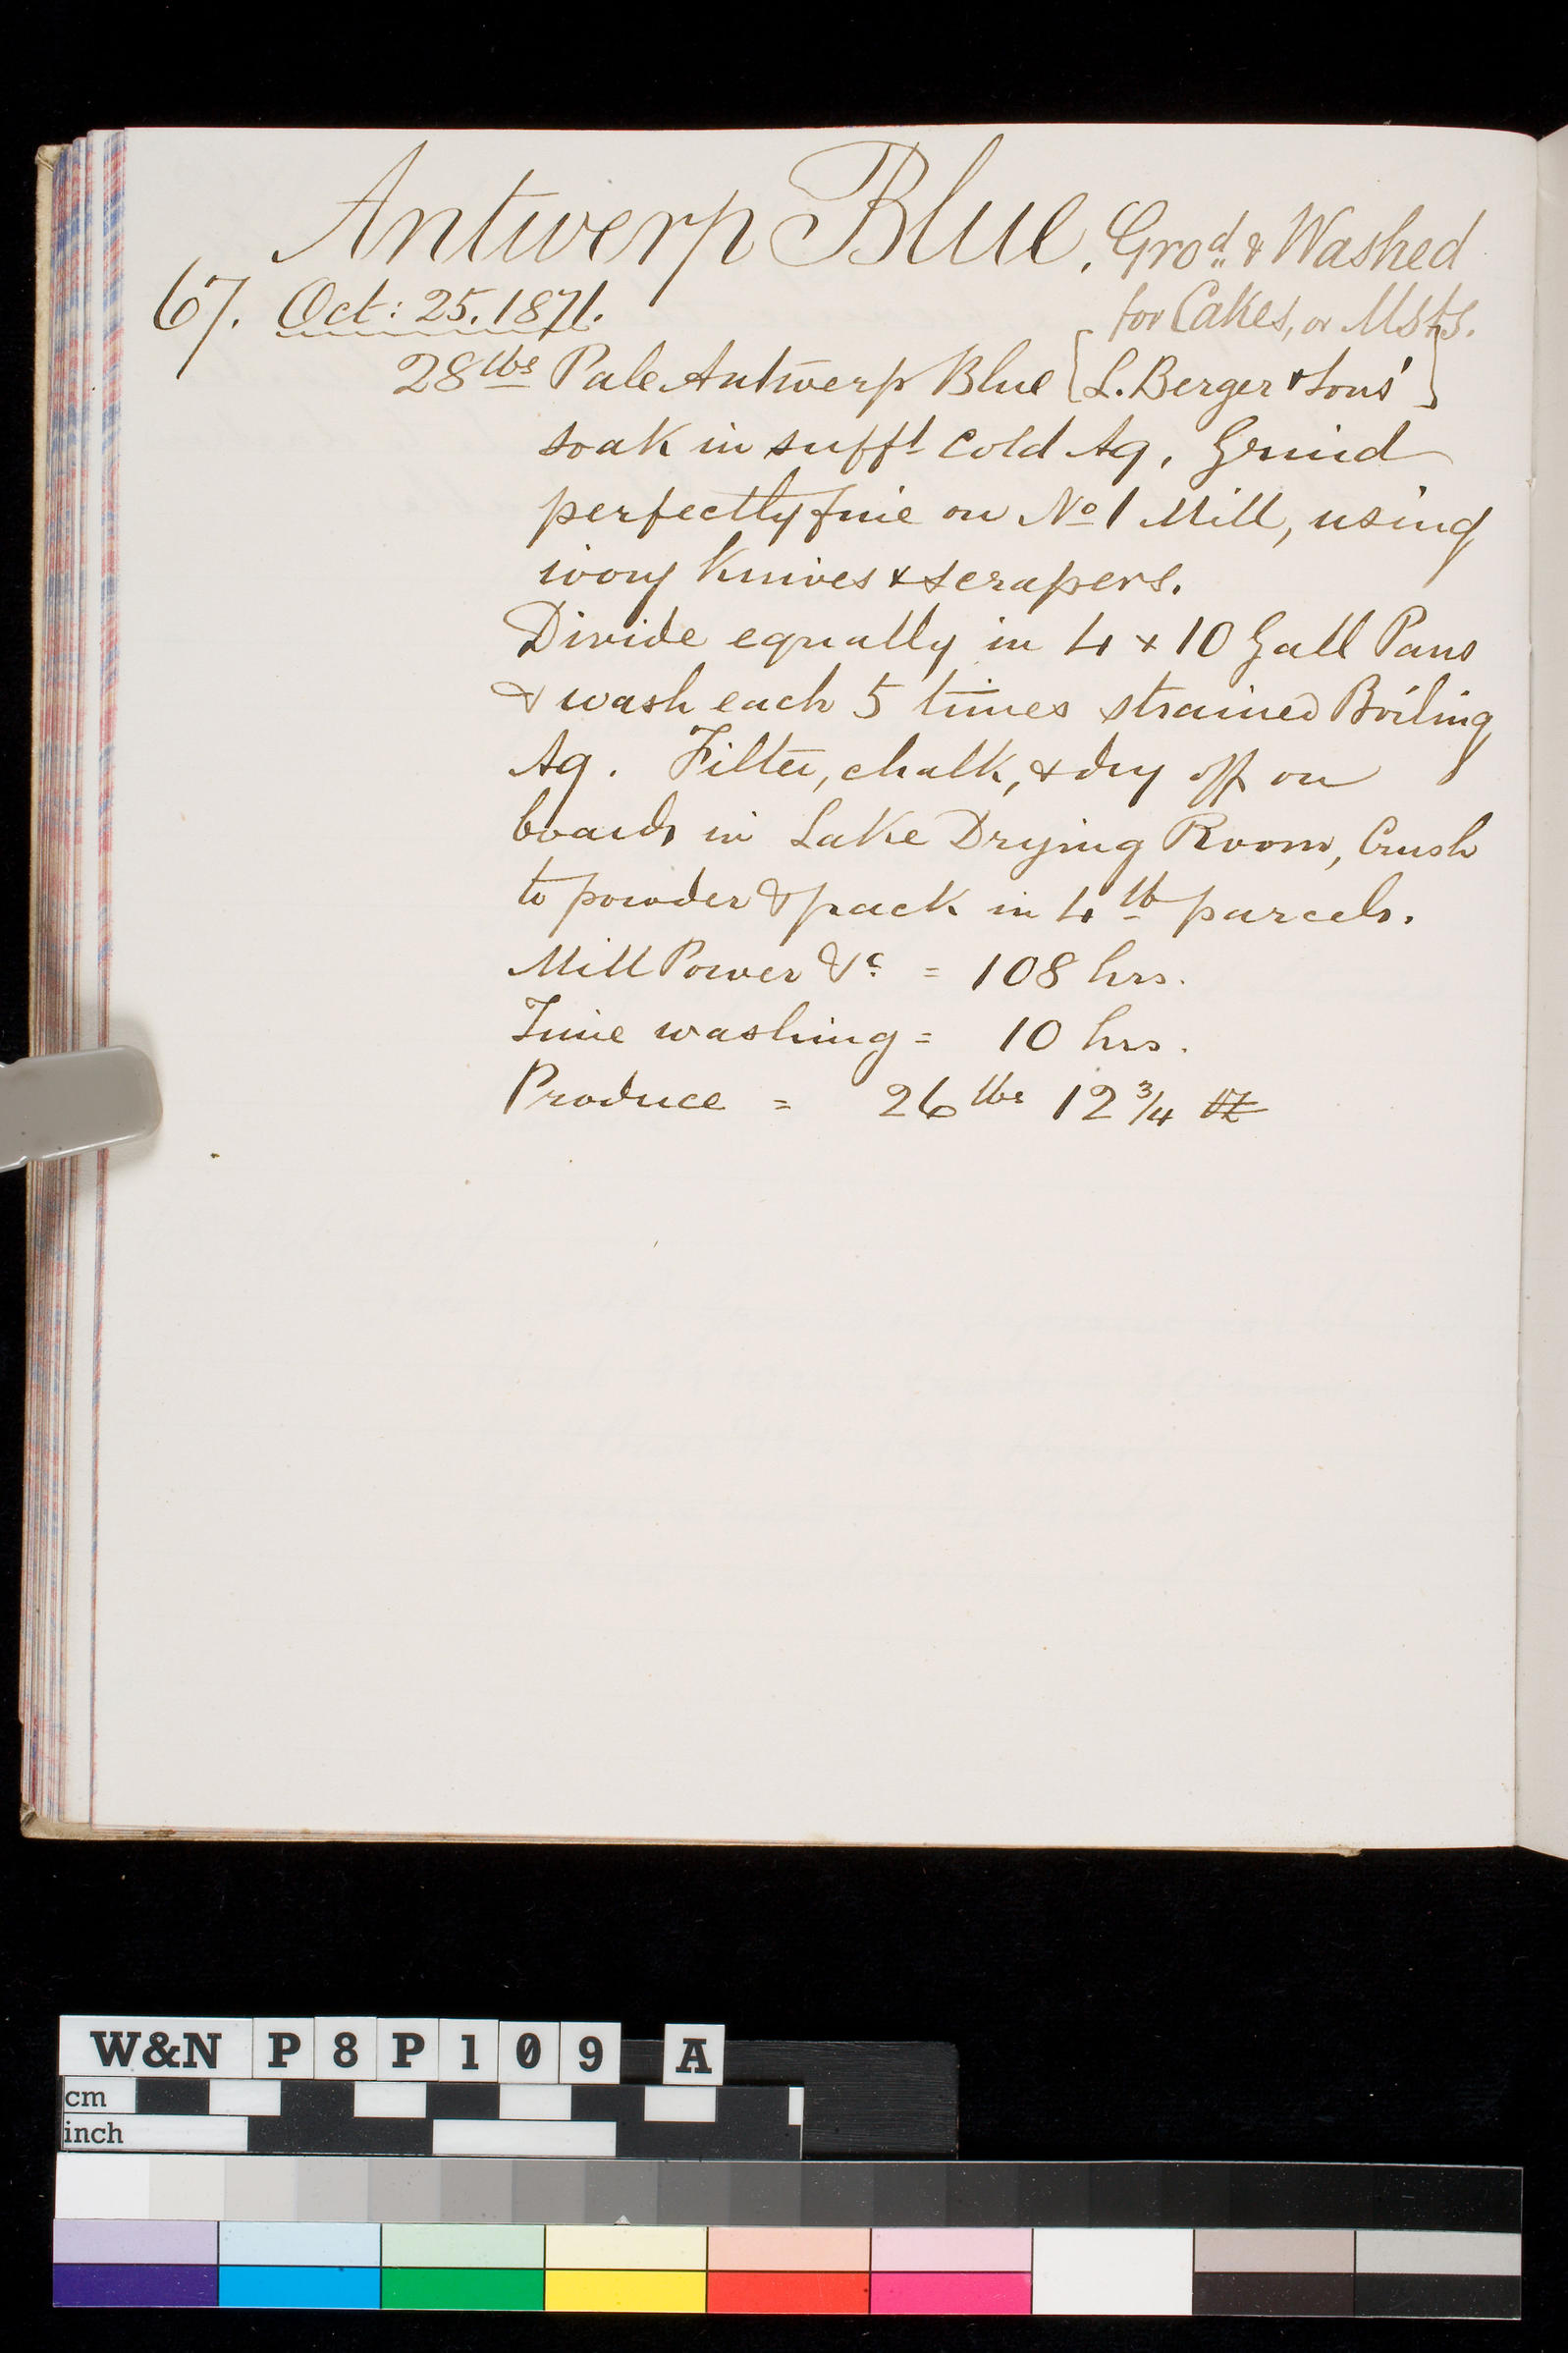 Antwerp Blue, Gro.d & Washed
for Cakes, or Msts.
67. Oct: 25. 1871.
28 lbs Pale Antwerp Blue [L. Berger & Sons']
soak in sufft cold Aq, Grind
perfectly fine on No 1 Mill, using
ivory Knives & scrapers.
Divide equally in 4 x 10 Gall Pans
& wash each 5 times strained Boiling
Aq. Filter, chalk, & dry off on
boards in Lake Drying Room, Crush
to powder & pack in 4 lb parcels.
Mill Power &c = 108 hrs.
Time washing = 10 hrs.
Produce = 26 lbs 12 3/4 oz
W&N P8P109 A
cm
inch